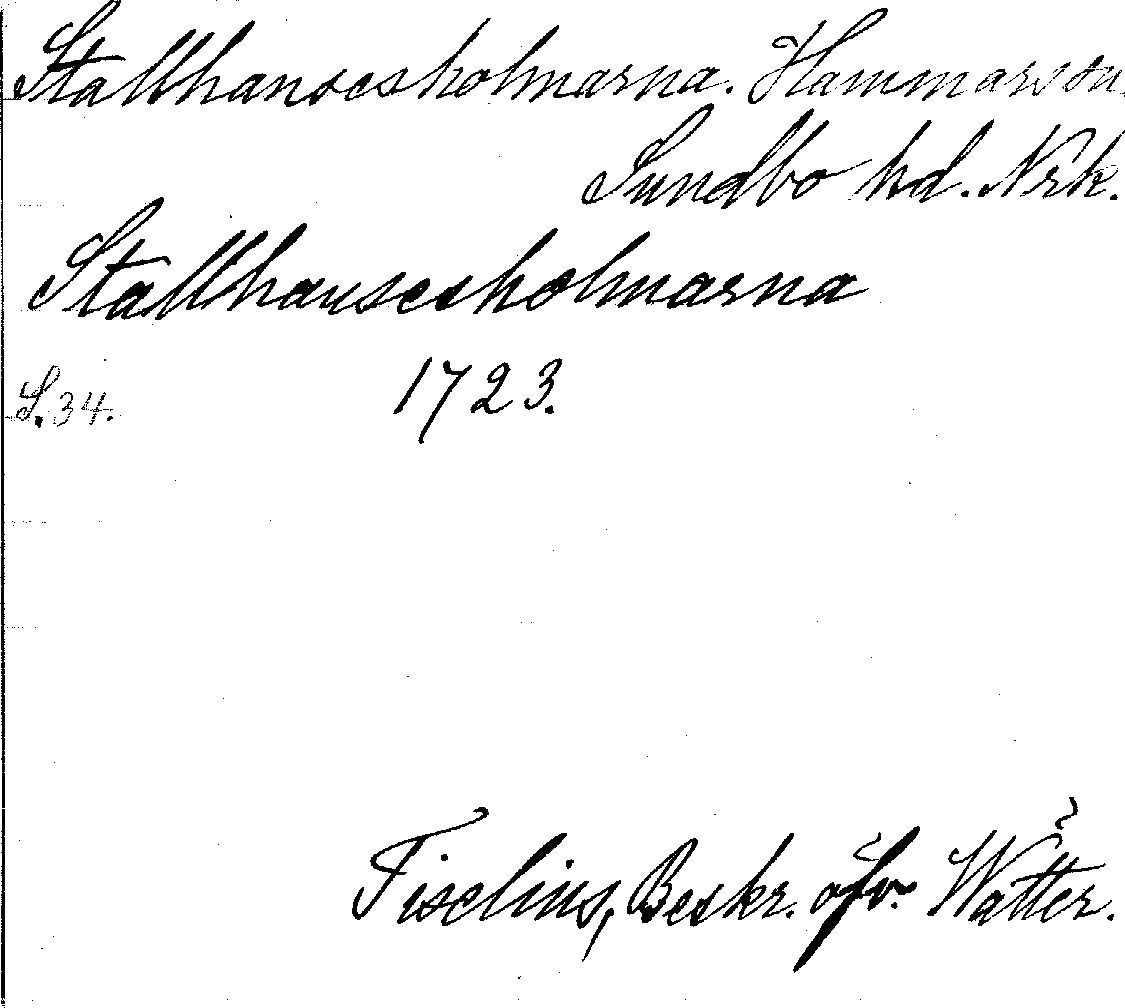 Stallhansesholmarna. Hammars sn.
Sundbo hd. Nrk.
Stallhansesholmarna
S. 34. 1723.
Tiselius, Beskr. öfv. Wätter.